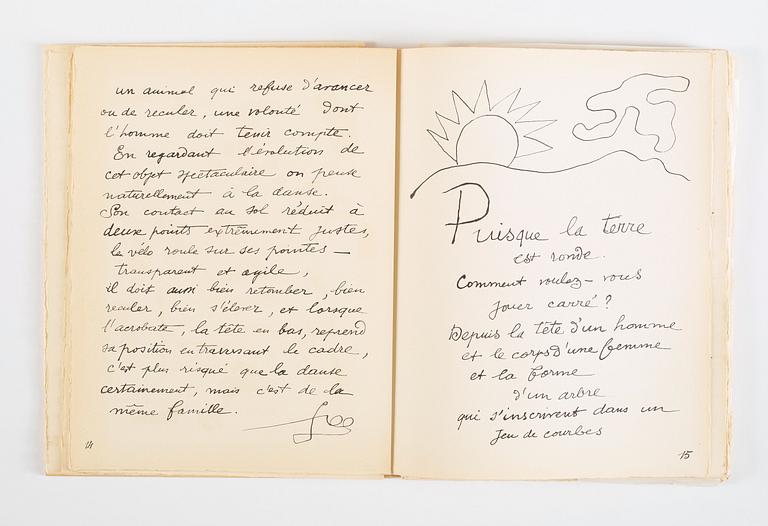 un animal qui refuse d'avancer
ou de reculer, une volonté dont
l'homme doit tenir compte.
En regardant l'évolution de
cet objet spectaculaire on pense
naturellement à la danse.
Son contact au sol réduit à
deux points extrêmement justes,
le vélo roule sur ses pointes —
transparent et agile,
il doit aussi bien retomber, bien
reculer, bien s'élever, et lorsque
l'acrobate, la tête en bas, reprend
sa position en traversant le cadre,
c'est plus risqué que la danse
certainement, mais c'est de la
même famille.
14
Puisque la terre
est ronde.
Comment voulez-vous
jouer carré ?
Depuis la tête d'un homme
et le corps d'une femme
et la forme
d'un arbre
qui s'inscrivent dans un
jeu de courbes
15